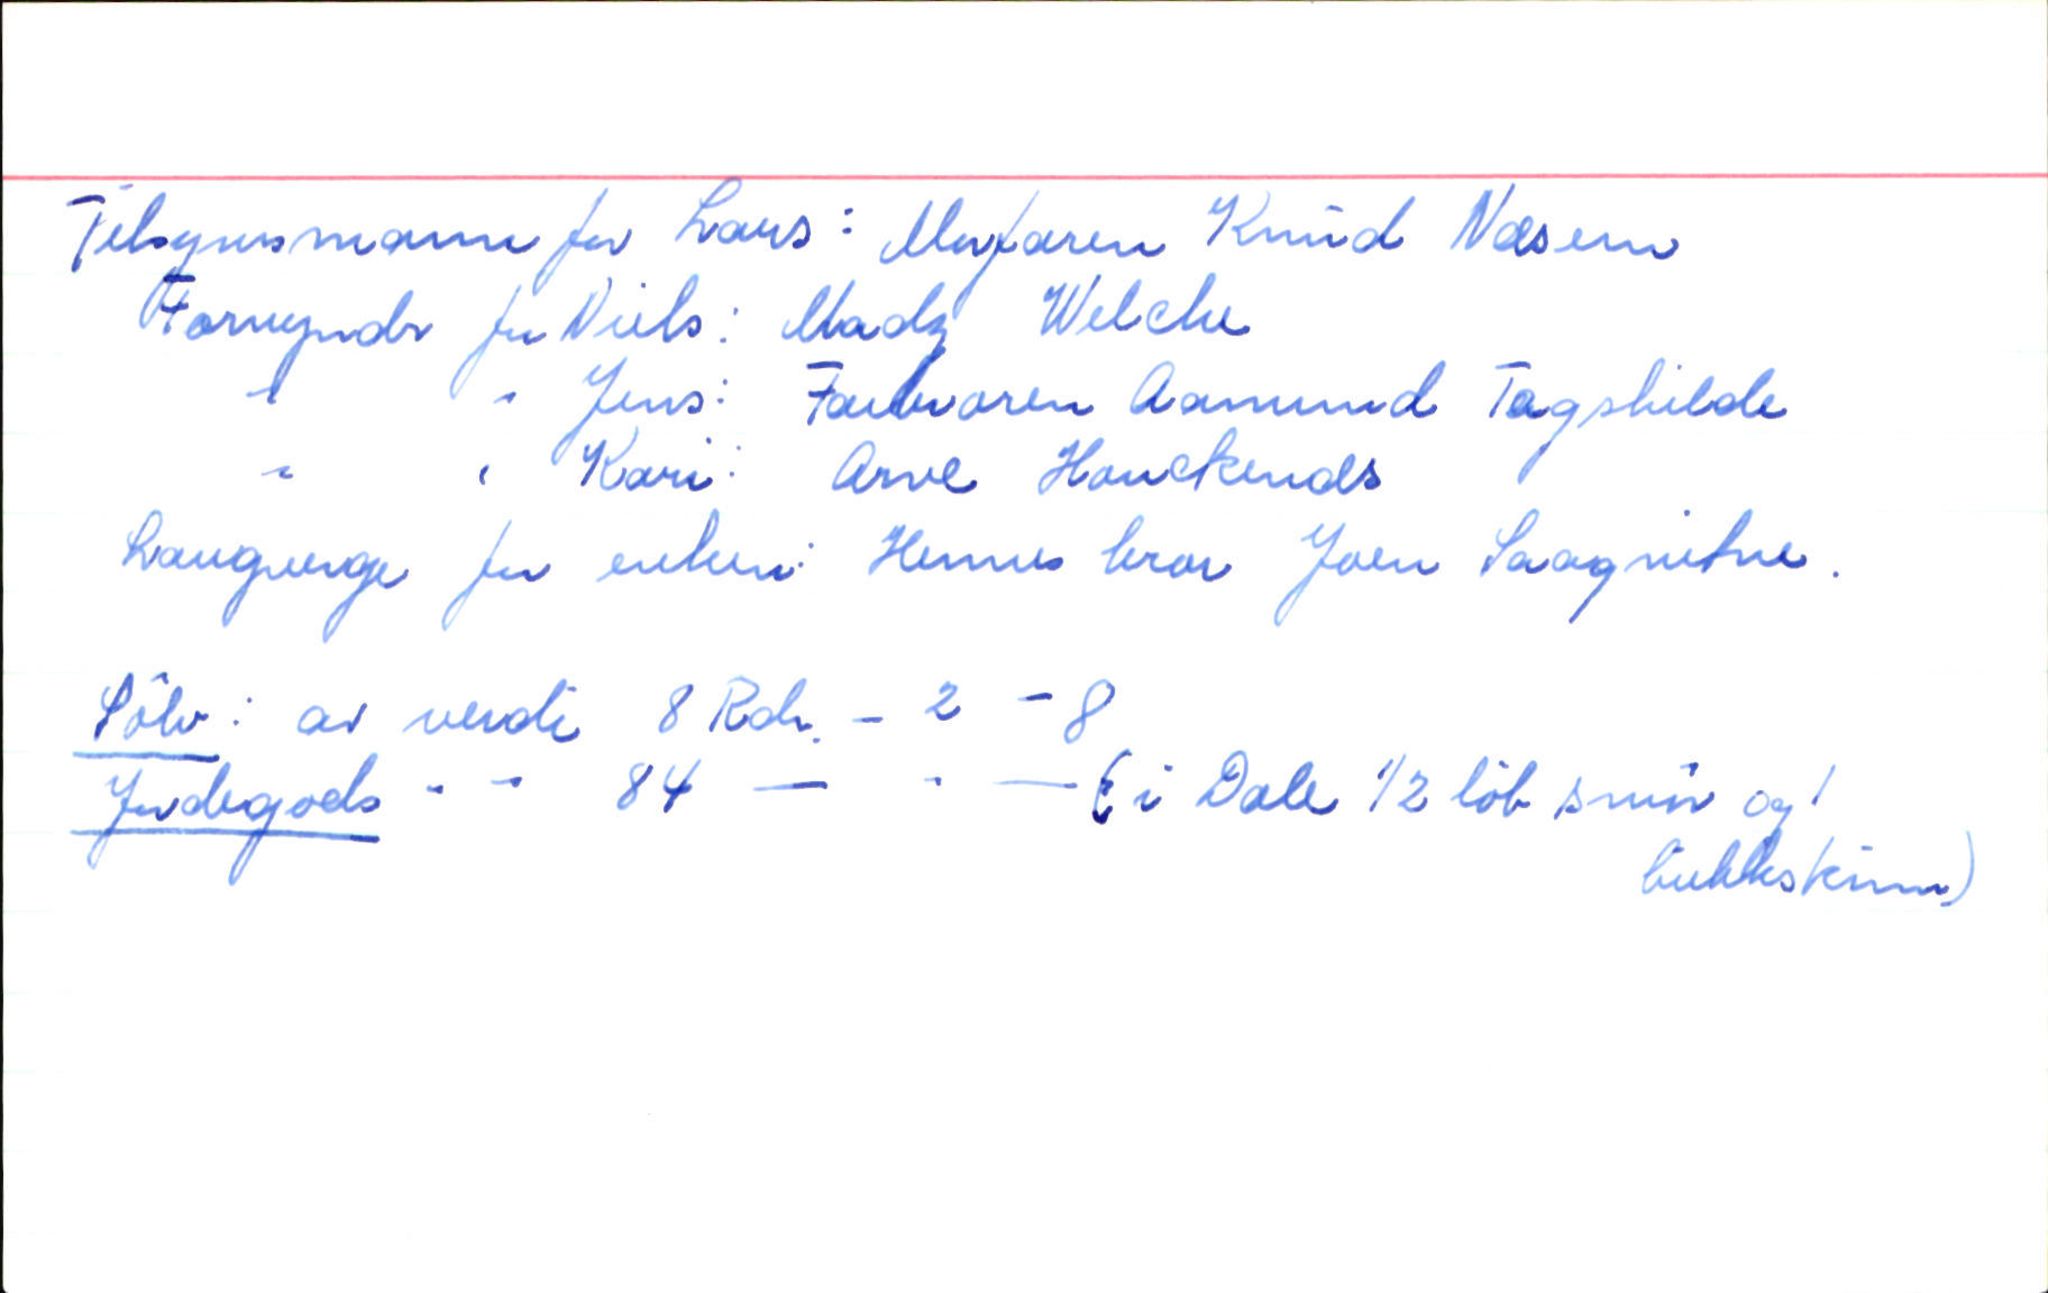 Tilsynsmann for Lars: Morfaren Knud Næsem
Formyndr for Niels: Madz Welche
" " Jens: Farbroren Aamund Tagshilde
" " Kari: Arve Houckenæs
Laugverge for enken: Hennes bror Joen Saagnetne.
Sölv: av verdi 8 Rdr. - 2 - 8
Jordegods " " 84 — " — (i Dale 1/2 löb smör og 1
bukkskinn)